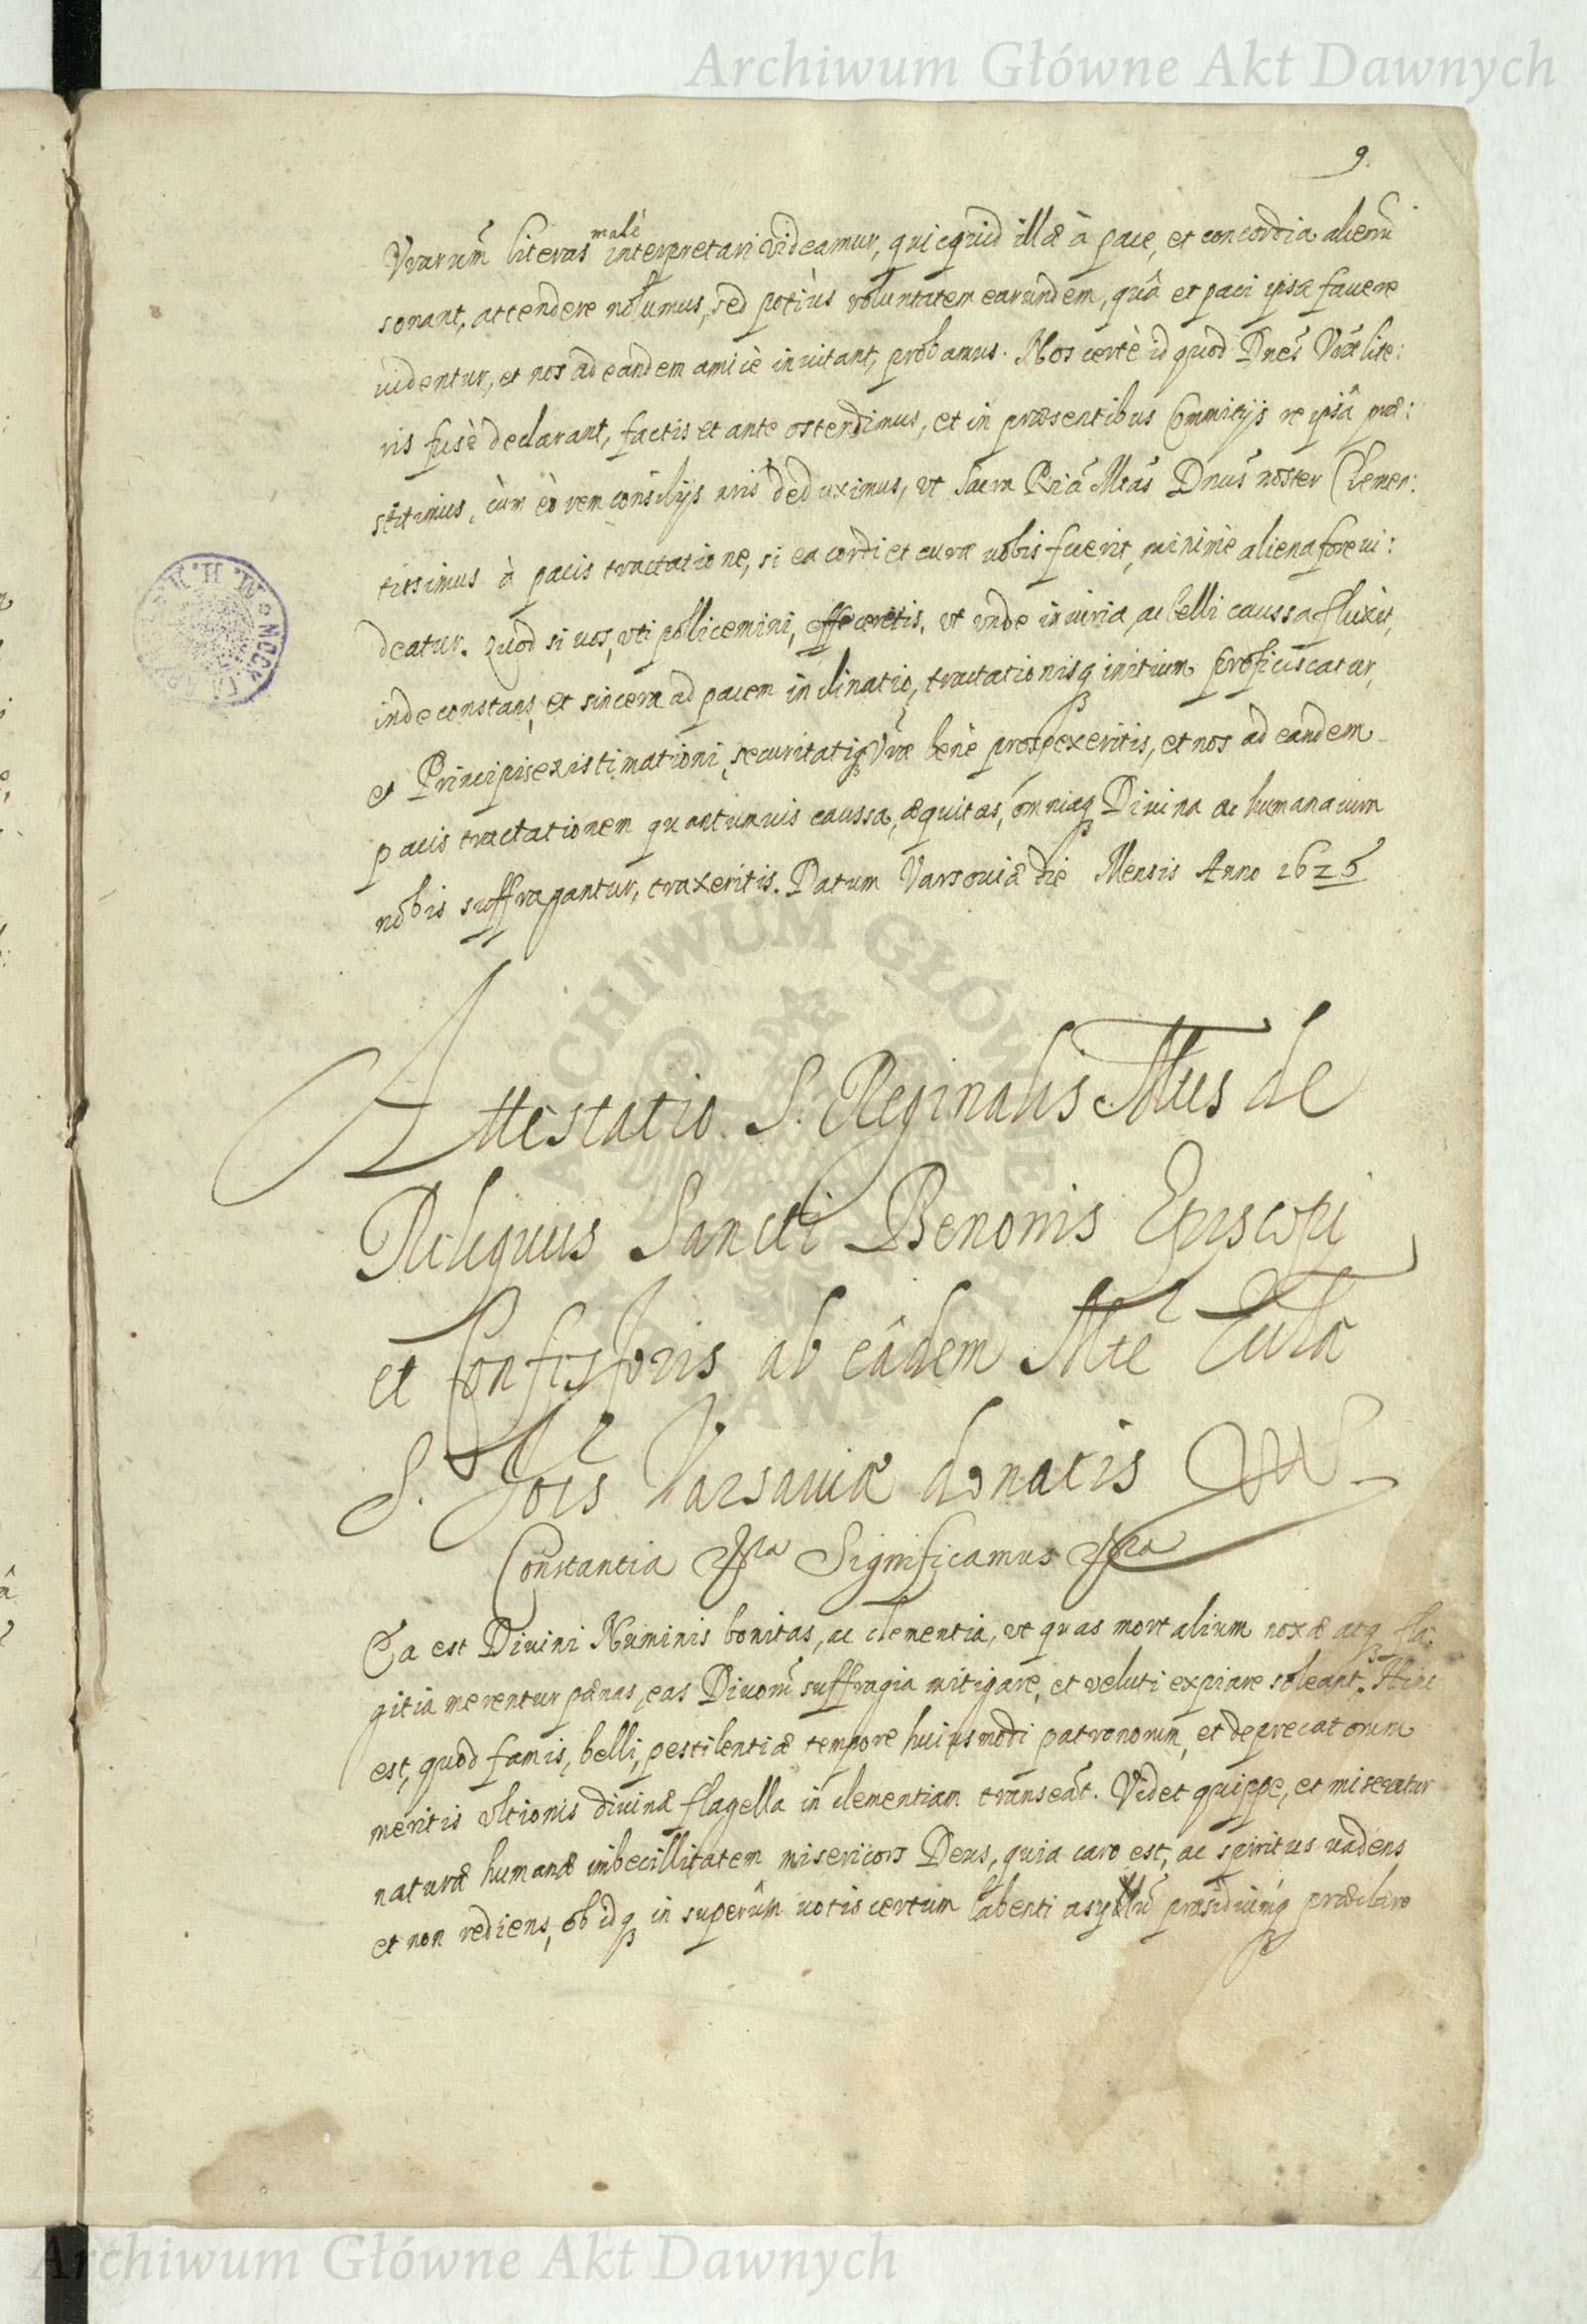 Archiwum Główne Akt Dawnych
9.
Vrarum̃ literas malè interpretari videamur, quicquid illæ à pace, et concordia alienũ
sonant, attendere nolumus, sed potiùs voluntatem earundem, quâ et paci ipsæ fauere
uidentur, et nos ad eandem amicè inuitant, probamus. Nos certè id quod Dnẽs Vr̃æ lite:
ris fusè declarant, factis et ante ostendimus, et in præsentibus Commitijs re ipsâ præ:
stitimus, cùm eò rem consilijs nris deduximus, vt Sacra Rīa Mtās Dnūs noster Clemen:
tissimus à pacis tractatione, si ea cordi et curæ uobis fuerit, minimè aliena fore ui:
deatur. Quod si uos, vti pollicemini, effeceritis, vt vnde iniuria, ac belli caussa fluxit,
inde constans, et sincera ad pacem inclinatio, tractationisq initium proficiscatur,
et Principis existimationi, securitatiq Vr̃æ benè prospexeritis, et nos ad eandem
pacis tractationem quantumuis caussa, æquitas, omniaq Diuina ac humana iura
nobis suffragantur, traxeritis. Datum Varsouiæ die Mensis Anno 1626
Attestatio S. Reginalis Mtus de
Reliquiis Sancti Benonis Episcopi
et Confessoris ab eâdem Mte Eccłæ
S. Jois Varsauiæ donatis
Constantia &ra Significamus &ra
Ea est Diuini Numinis bonitas, ac clementia, vt quas mortalium noxæ atq fla:
gitia merentur pænas, eas Diuorũ suffragia mitigare, et veluti expiare soleant. Hinc
est, quod famis, belli, pestilentiæ tempore huiusmodi patronorum, et deprecatorum
meritis vltionis diuinæ flagella in clementiam transeãt. Videt quippe, et miseratur
naturæ humanæ imbecillitatem misericors Deus, quia caro est, ac spiritus uadens
et non rediens, ob idq in superûm uotis certum labenti asylũ præsidiumq præclaro
Archiwum Główne Akt Dawnych